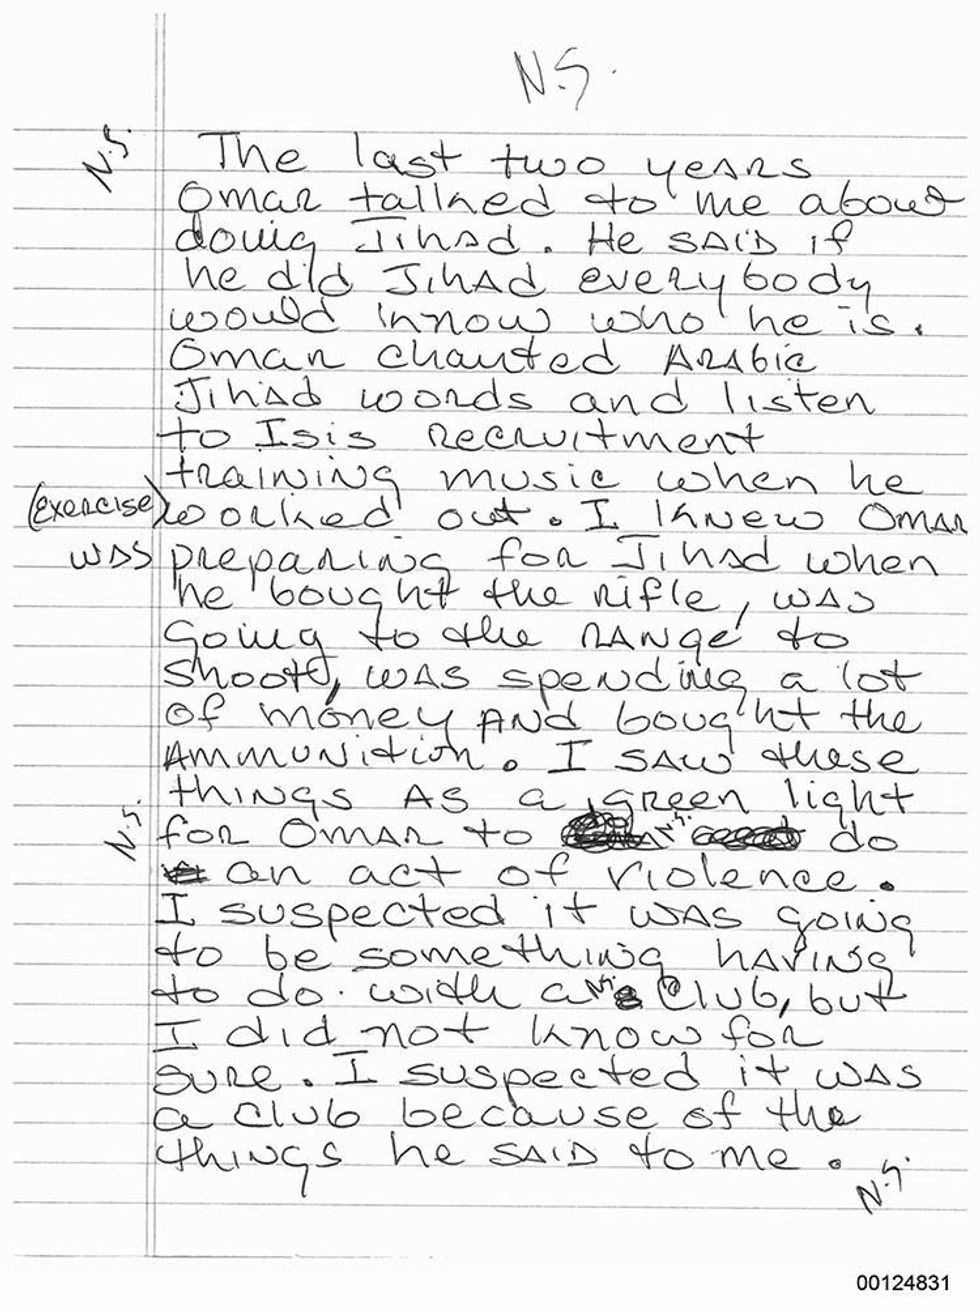 N.S.
N.S. The last two years
Omar talked to me about
doing Jihad. He said if
he did Jihad everybody
would know who he is.
Omar chanted Arabic
Jihad words and listen
to Isis recruitment
training music when he
(exercise) worked out. I knew Omar
was preparing for Jihad when
he bought the rifle, was
going to the range to
shoot, was spending a lot
of money and bought the
ammunition. I saw these
things as a green light
N.S. for Omar to N.S. do
an act of violence.
I suspected it was going
to be something having
to do with a N.S. Club, but
I did not know for
sure. I suspected it was
a club because of the
things he said to me.
N.S.
00124831